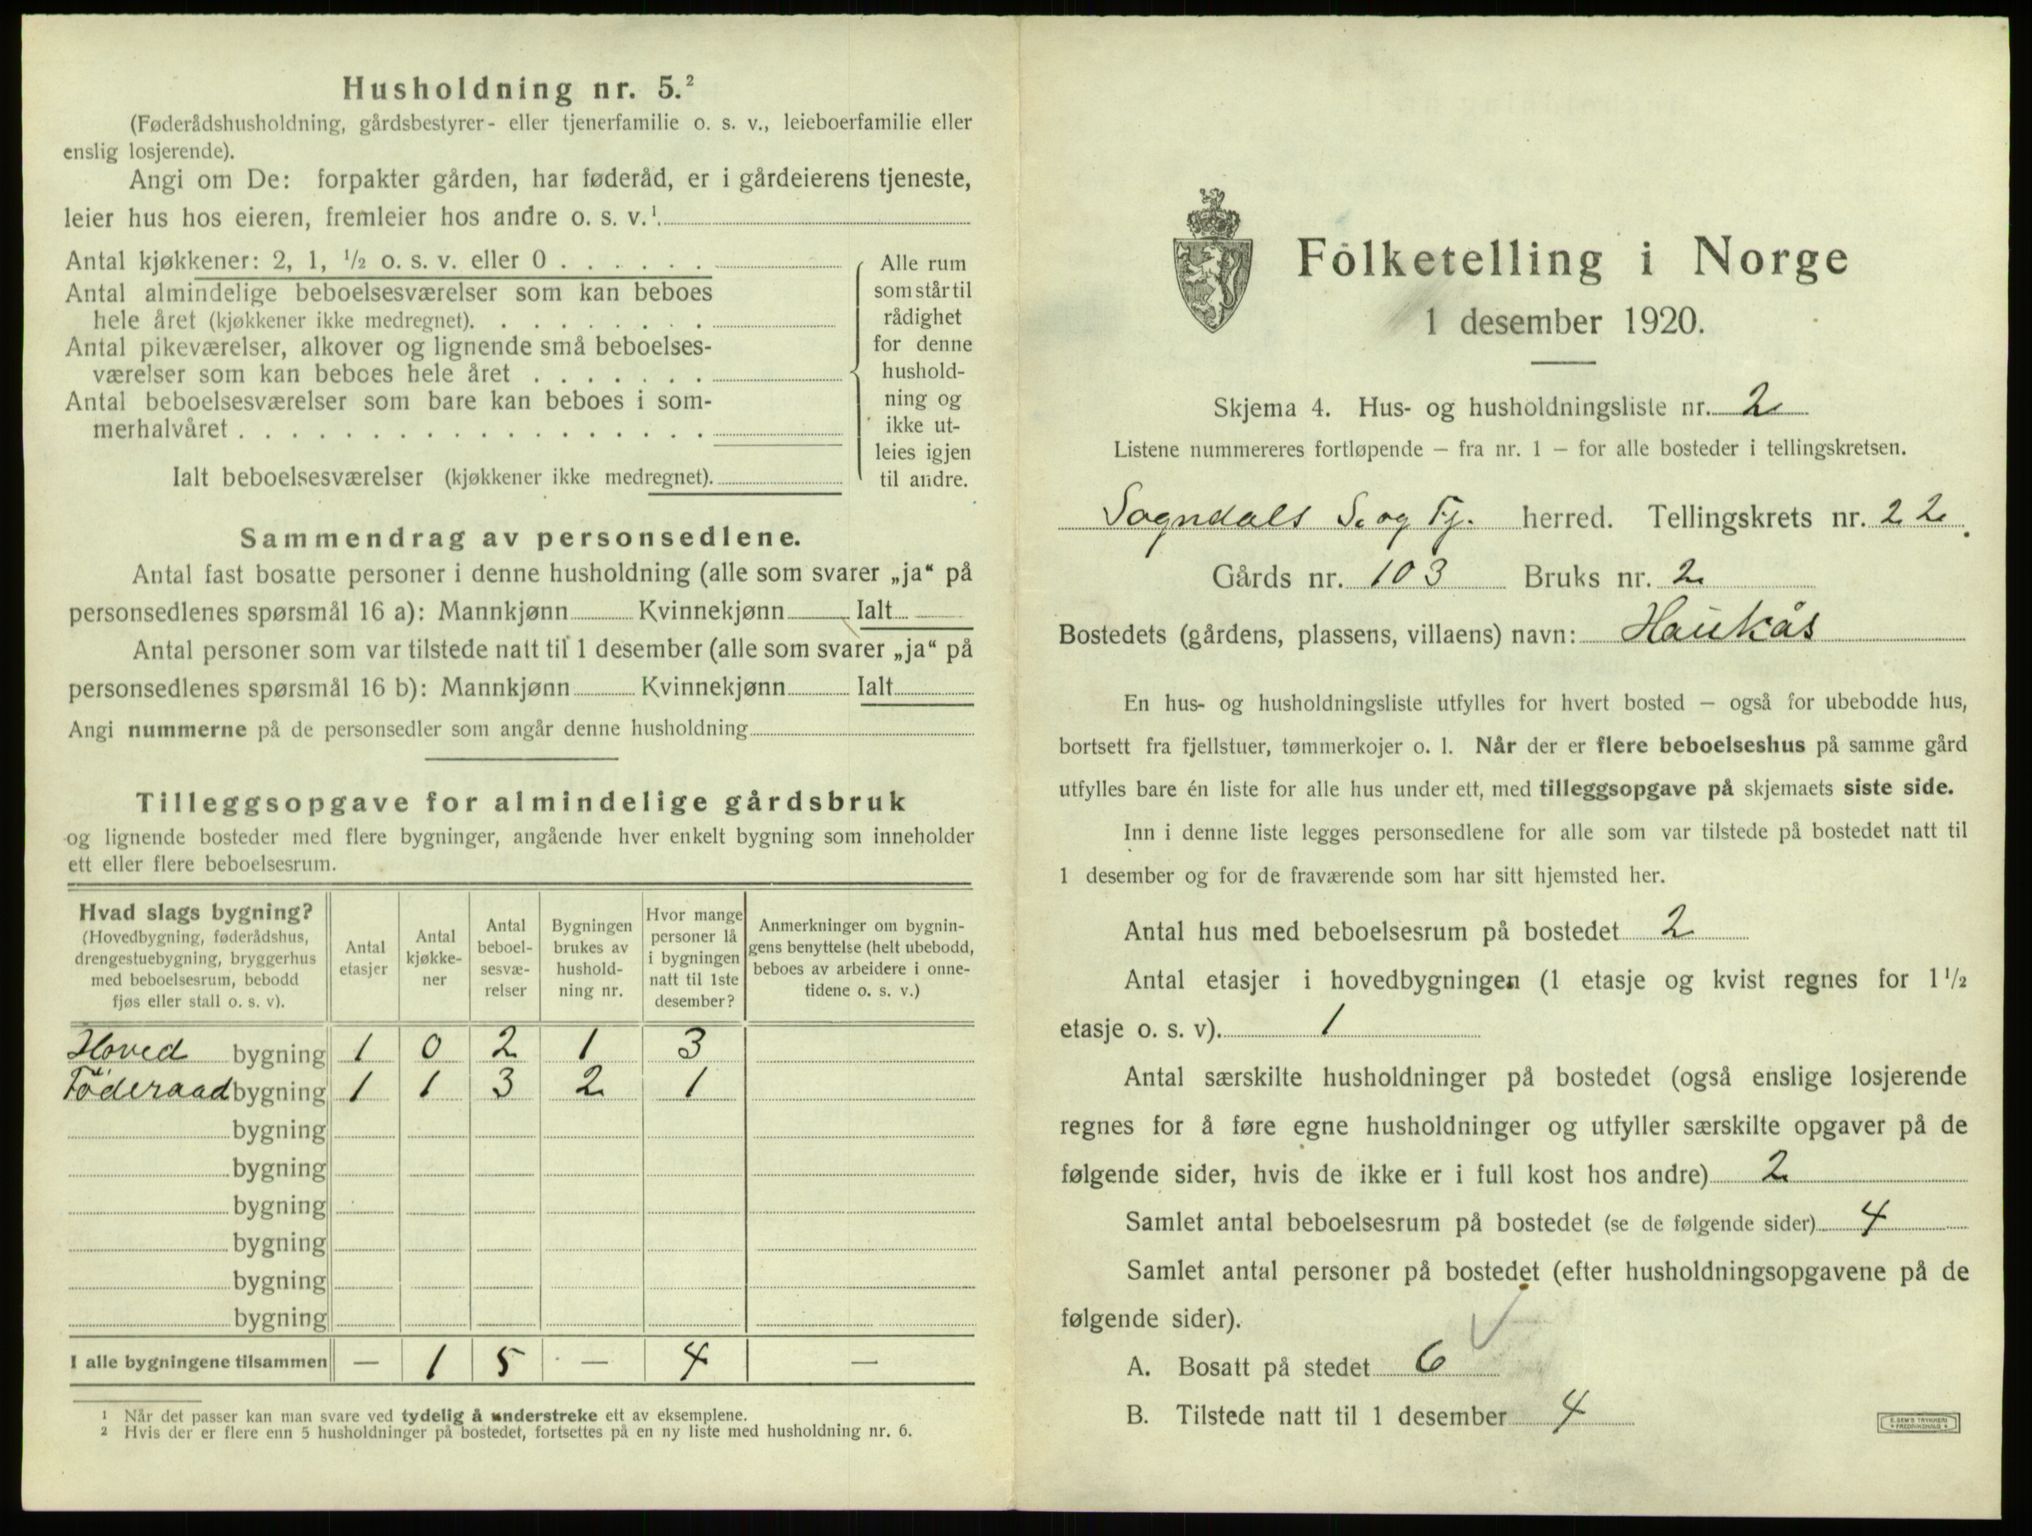 Husholdning nr. 5.²
(Føderådshusholdning, gårdsbestyrer- eller tjenerfamilie o. s. v., leieboerfamilie eller
enslig losjerende).
Angi om De: forpakter gården, har føderåd, er i gårdeierens tjeneste,
leier hus hos eieren, fremleier hos andre o. s. v.¹
Antal kjøkkener: 2, 1, ½ o. s. v. eller 0 . . . . . .
Antal almindelige beboelsesværelser som kan beboes
hele året (kjøkkener ikke medregnet). . . . . . . . .
Antal pikeværelser, alkover og lignende små beboelses-
værelser som kan beboes hele året . . . . . . .
Antal beboelsesværelser som bare kan beboes i som-
merhalvåret . . . . . . . . . . . . . . . . . .
Ialt beboelsesværelser (kjøkkener ikke medregnet).
Alle rum
som står til
rådighet
for denne
hushold-
ning og
ikke ut-
leies igjen
til andre.
Sammendrag av personsedlene.
Antal fast bosatte personer i denne husholdning (alle som svarer „ja“ på
personsedlenes spørsmål 16 a): Mannkjønn Kvinnekjønn Ialt
Antal personer som var tilstede natt til 1 desember (alle som svarer „ja“ på
personsedlenes spørsmål 16 b): Mannkjønn Kvinnekjønn Ialt
Angi nummerne på de personsedler som angår denne husholdning
Tilleggsopgave for almindelige gårdsbruk
og lignende bosteder med flere bygninger, angående hver enkelt bygning som inneholder
ett eller flere beboelsesrum.
Hvad slags bygning?
(Hovedbygning, føderådshus,
drengestuebygning, bryggerhus
med beboelsesrum, bebodd
fjøs eller stall o. s. v).
Antal
etasjer
Antal
kjøkke-
ner
Antal
beboel-
sesvæ-
relser
Bygningen
brukes av
hushold-
ning nr.
Hvor mange
personer lå
i bygningen
natt til 1ste
desember?
Anmerkninger om bygnin-
gens benyttelse (helt ubebodd,
beboes av arbeidere i onne-
tidene o. s. v.)
Hoved bygning 1 0 2 1 3
Föderaad bygning 1 1 3 2 1
bygning
bygning
bygning
bygning
bygning
bygning
I alle bygningene tilsammen — 1 5 — 4 —
¹ Når det passer kan man svare ved tydelig å understreke ett av eksemplene.
² Hvis der er flere enn 5 husholdninger på bostedet, fortsettes på en ny liste med husholdning nr. 6.
Folketelling i Norge
1 desember 1920.
Skjema 4. Hus- og husholdningsliste nr. 2
Listene nummereres fortløpende – fra nr. 1 – for alle bosteder i tellingskretsen.
Sogndals S. og Fj. herred. Tellingskrets nr. 22.
Gårds nr. 103 Bruks nr. 2
Bostedets (gårdens, plassens, villaens) navn: Haukås
En hus- og husholdningsliste utfylles for hvert bosted – også for ubebodde hus,
bortsett fra fjellstuer, tømmerkojer o. l. Når der er flere beboelseshus på samme gård
utfylles bare én liste for alle hus under ett, med tilleggsopgave på skjemaets siste side.
Inn i denne liste legges personsedlene for alle som var tilstede på bostedet natt til
1 desember og for de fraværende som har sitt hjemsted her.
Antal hus med beboelsesrum på bostedet 2
Antal etasjer i hovedbygningen (1 etasje og kvist regnes for 1½
etasje o. s. v). 1
Antal særskilte husholdninger på bostedet (også enslige losjerende
regnes for å føre egne husholdninger og utfyller særskilte opgaver på de
følgende sider, hvis de ikke er i full kost hos andre) 2
Samlet antal beboelsesrum på bostedet (se de følgende sider) 4
Samlet antal personer på bostedet (efter husholdningsopgavene på de
følgende sider).
A. Bosatt på stedet 6
B. Tilstede natt til 1 desember 4
E. SEM'S TRYKKERI
* FREDRIKSHALD *